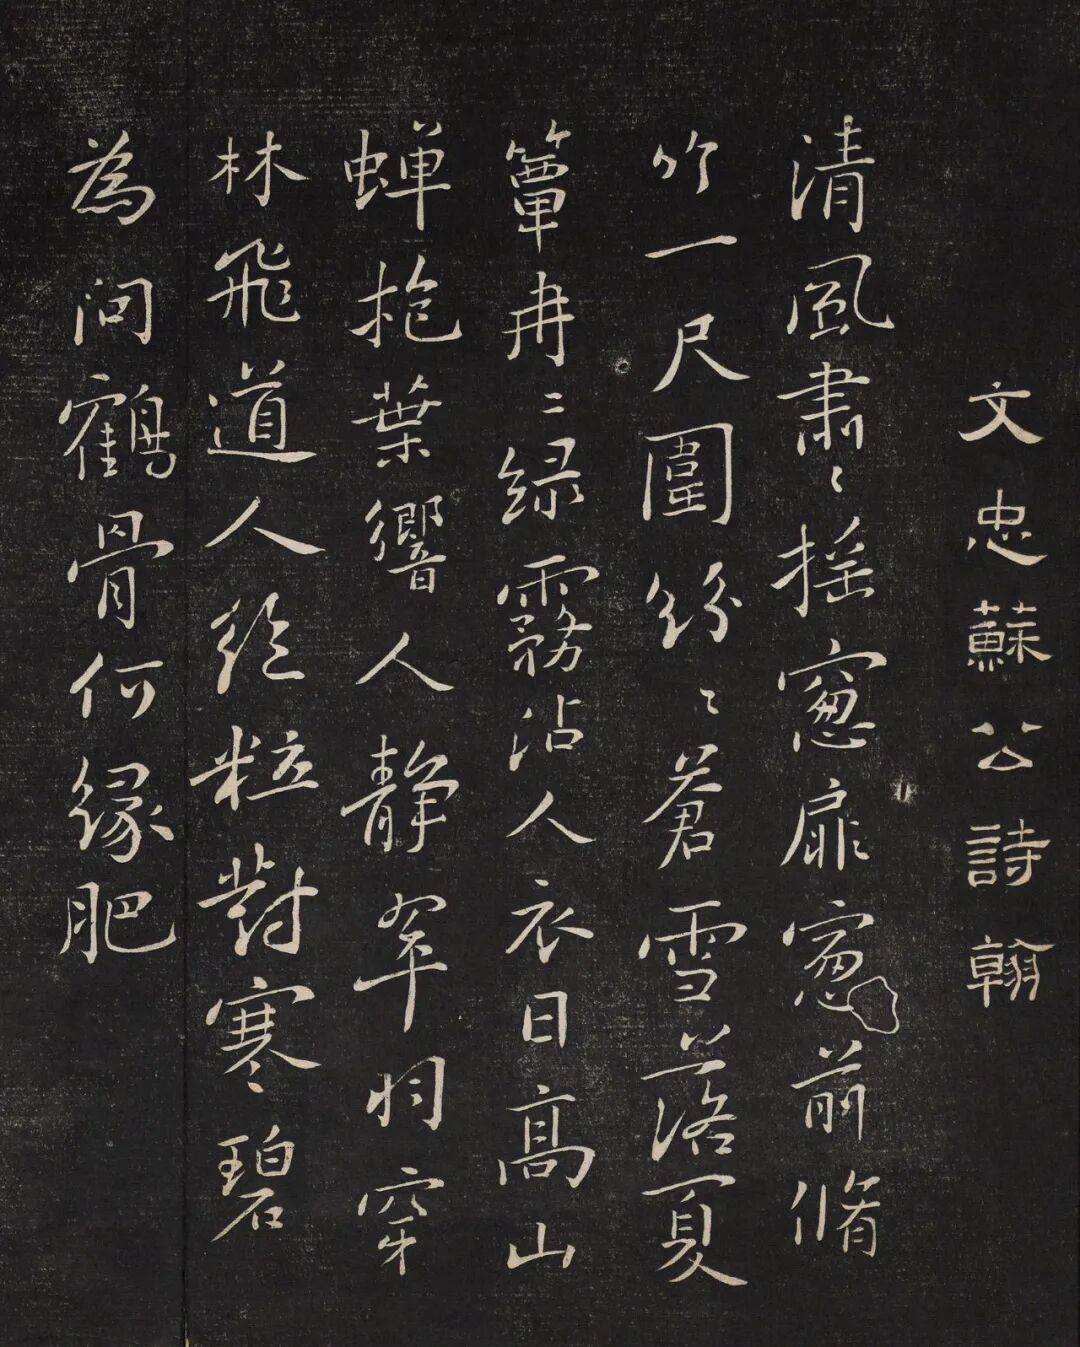 文忠蘇公詩翰
清風肅〻搖窻扉窻前脩
竹一尺圍紛〻蒼雪落夏
簟冉〻綠霧沾人衣日高山
蟬抱葉響人靜翠羽穿
林飛道人絕粒對寒碧
為問鶴骨何緣肥